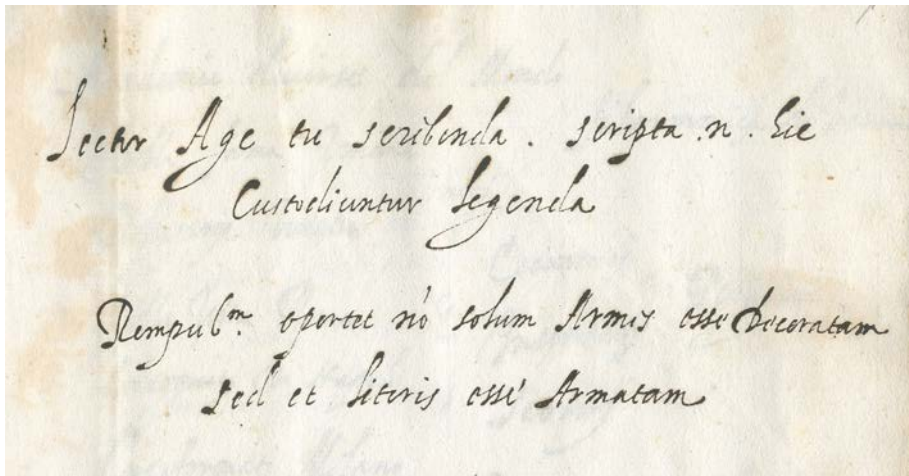 Lector Age tu scribenda . scripta .n. hic
Custodiuntur legenda
Rempub.m oportet nõ solum Armis esse decoratam
sed et literis esse Armatam